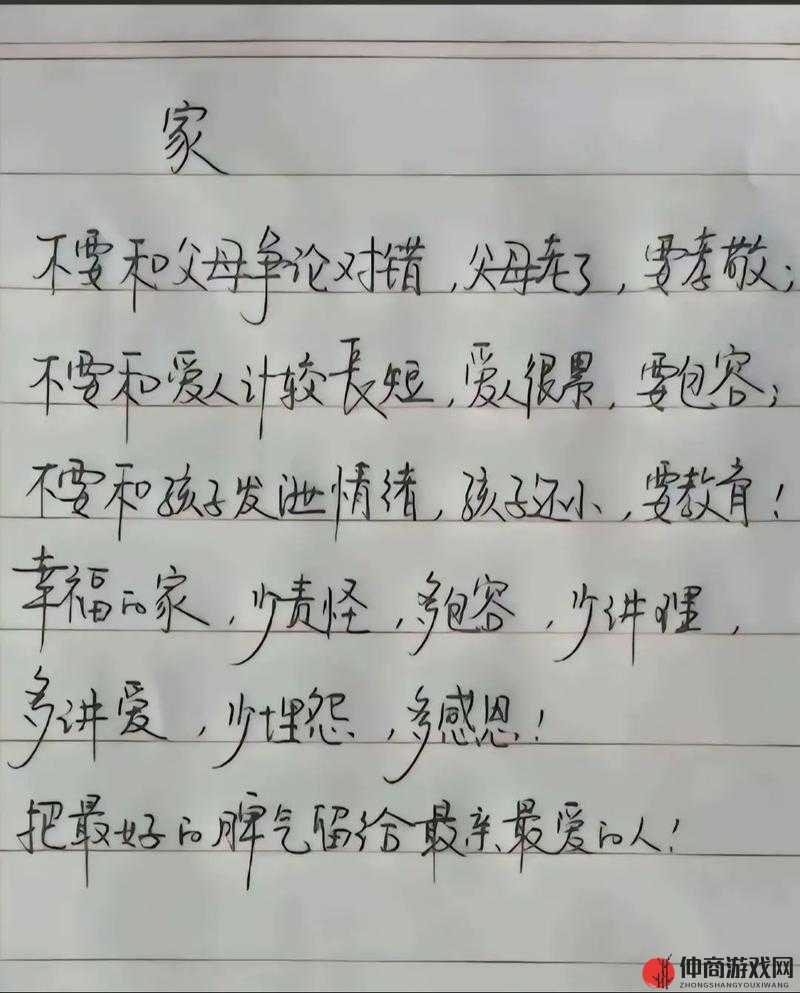 家
不要和父母争论对错，父母老了，要孝敬；
不要和爱人计较長短，爱人很累，要包容；
不要和孩子发泄情绪，孩子还小，要教育！
幸福的家，少责怪，多包容，少讲理，
多讲爱，少埋怨，多感恩！
把最好的脾气留给最亲最爱的人！
仲商游戏网
ZHONGSHANGYOUXIWANG